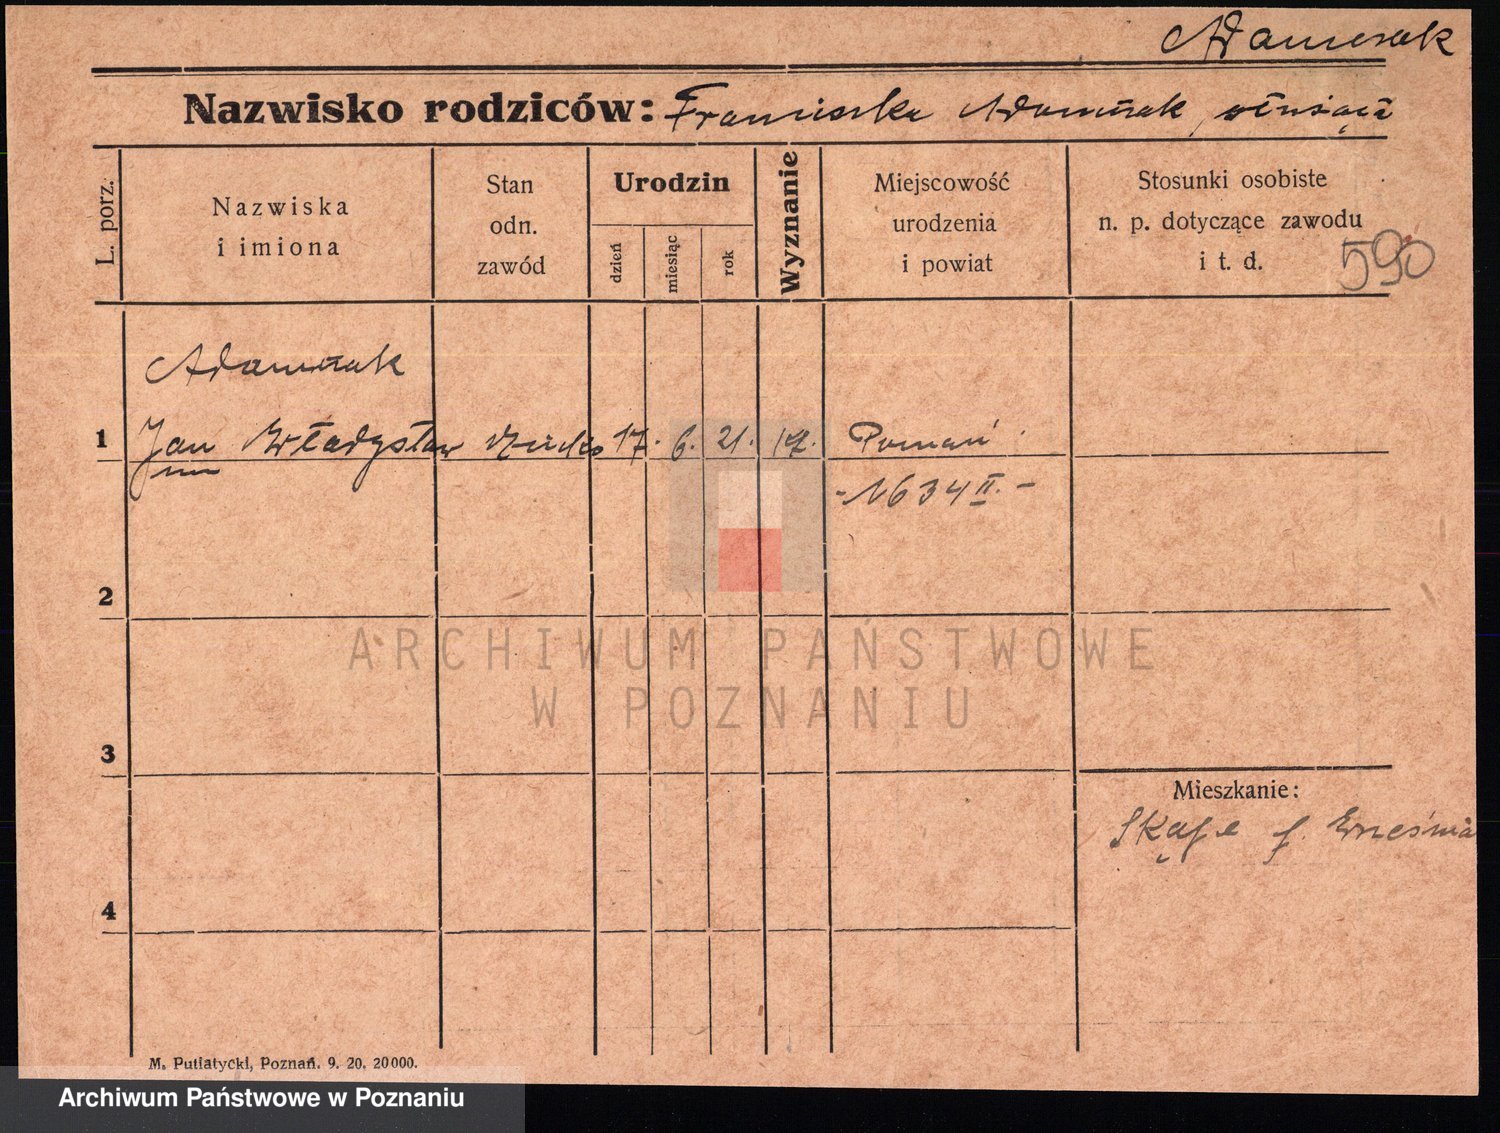 Adamczak
Nazwisko rodziców: Franciszka Adamczak, służąca
L. porz.
Nazwiska
i imiona
Stan
odn.
zawód
Urodzin
dzień
miesiąc
rok
Wyznanie
Miejscowość
urodzenia
i powiat
Stosunki osobiste
n. p. dotyczące zawodu
i t. d.
590
Adamczak
1 Jan Władysław dziecko 17. 6. 21. Poznań
-1634 II.-
2
3
4
Mieszkanie:
Września
M. Putiatycki, Poznań. 9. 20. 20000.
ARCHIWUM PAŃSTWOWE
W POZNANIU
Archiwum Państwowe w Poznaniu